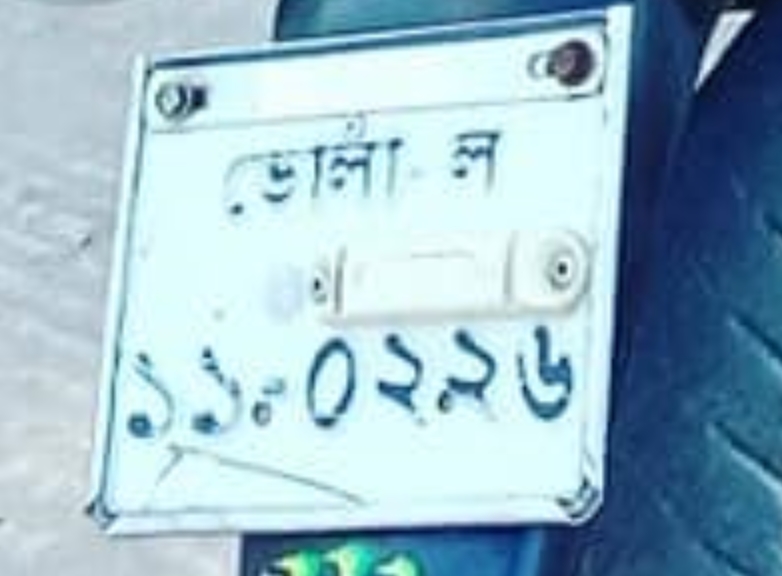 ভোলা-ল
১১-০২২৬